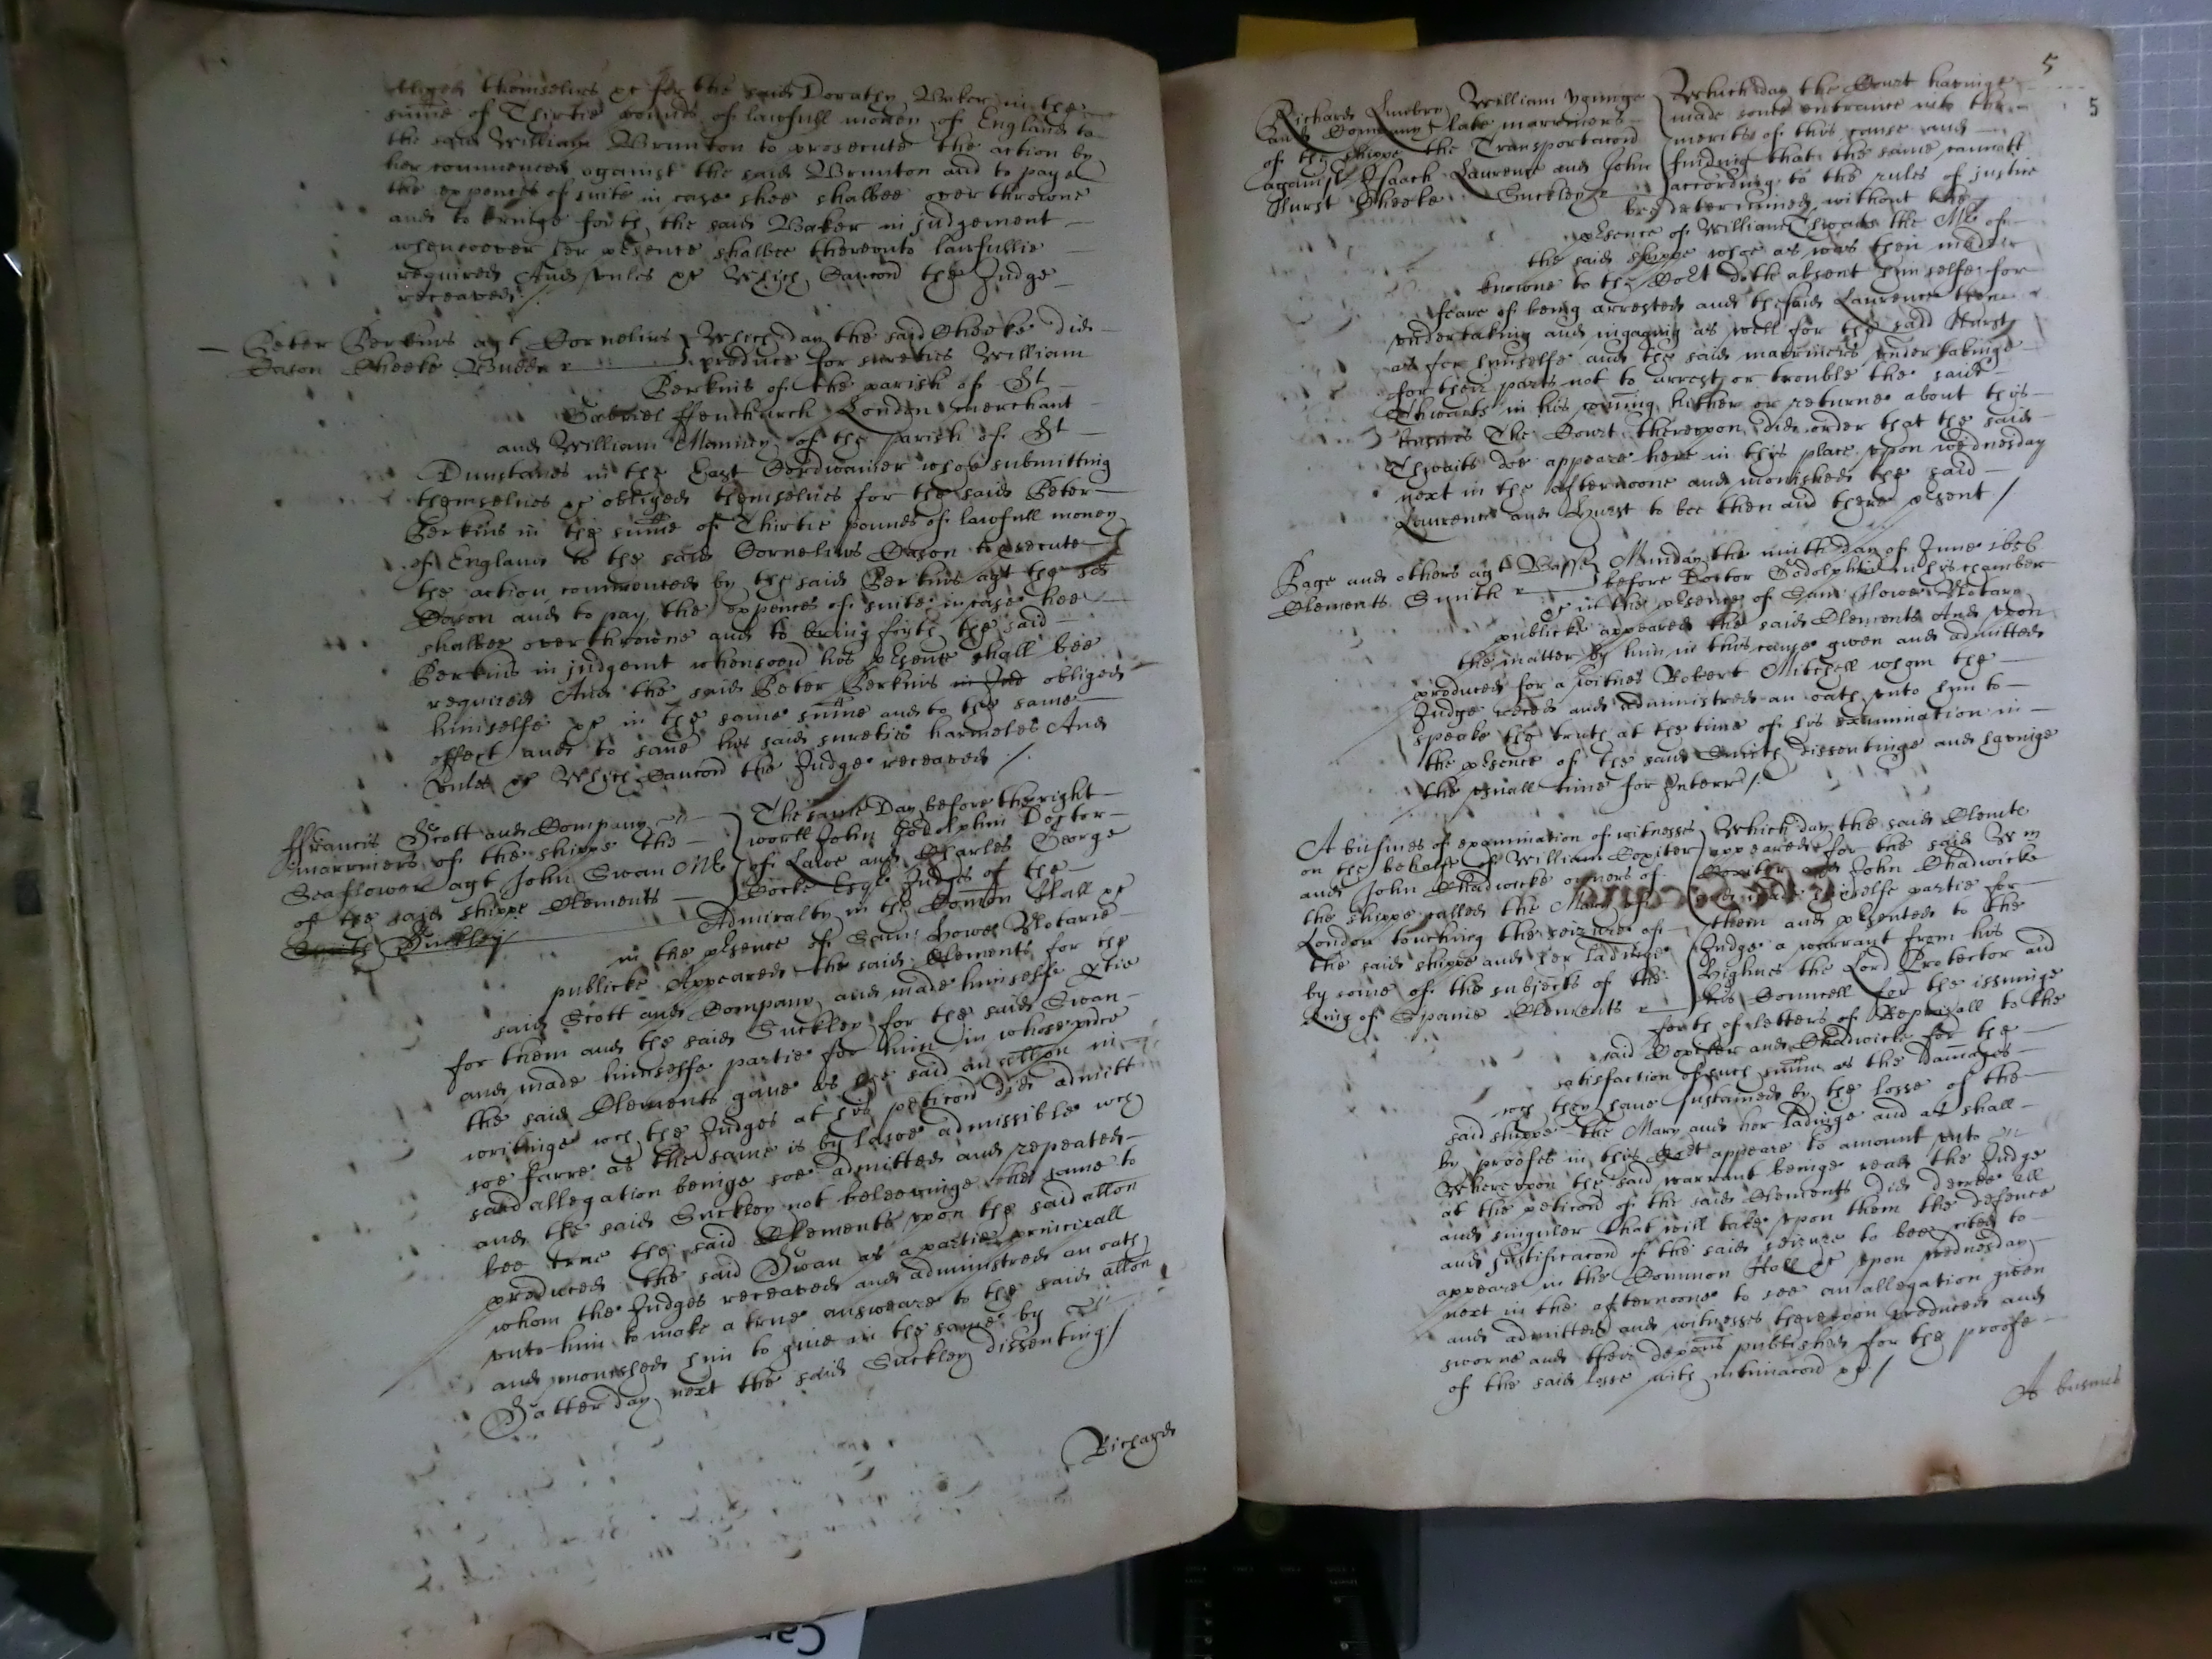 obliged themselves et for the said Dorathy Baker in the
summe of Thirtie pounds of lawfull money of England to
the said William Brunton to prosecute the action by
her commenced against the said Brunton and to paye
the expences of suite in case shee shalbee overthrowne
and to bringe forth the said Baker in judgement
whensoever her pnsence shalbee thereunto lawfullie
required And unles et Which Caucon the Judge
receaved /
Peter Perkins agt Cornelius
Cheeke
Which day the said Cheeke did
produce for sureties William
Perkins of the parish of St
Gabriel ffenchurch London merchant
and William Manning of the parish of St
Dunstanes in the East Cordwainer whoe submitting
themselves et obliged themselves for the said Peter
Perkins in the summe of Thirtie pounds of lawfull money
of England to the said Cornelius to psecute
the action commenced by the said Perkins agt the sd
and to pay the expences of suite in case hee
shalbee overthrowne and to bring forth the said
Perkins in judgemt whensoevr his pnsence shall bee
required And the said Peter Perkins in Jud obliged
himselfe et in the same summe and to the same
effect and to save his said sureties harmeles And
unles et Which Caucon the Judge receaved /
ffrancis Scott and Company
marriners of the shippe the
Seaflower agt John Swan Mr
of the said shippe Clements
Smith Suckley /
The same Day before the right
worll John Godolphin Doctor
of Lawe and Charles George
Cocke Esqr Judges of the
Admiralty in the Common Hall et
in the pnsence of Sam: Howe Notarie
publicke Appeared the said Clements for the
said Scott and Company and made himselfe ptie
for them and the said Suckley for the said Swan
and made himselfe partie for him in whose pnce
the said Clements gave as hee said an allon in
writinge wch the Judges at his peticon did admitt
soe farre as the same is by lawe admissible wch
said allegation beinge soe admitted and repeated
and the said Suckley not beleevinge the same to
bee true the said Clements upon the said allon
produced the said Swan as a partie principall
whom the Judges receaved and administred an oath
unto him to make a true answeare to the said allon
and monished him to give in the same by
Satterday next the said Suckley dissenting /
Richard
5
5
Richard William Younge
and Company late marriners
of the shippe the Transportacon
against Isaack Laurence and John
Hurst Cheeke Suckley
Which day the Court havinge
made some entrance into the
merits of this cause and
finding that the same cannott
according to the rules of justice
bee determined without the
pnsence of William Thwaits the Mr of
the said shippe whoe as was then made
knowne to the Cort doth absent himselfe for
feare of being arrested and the said Laurence then
undertaking and ingaging as well for the said Hurst
as for himselfe and the said marriners undertakinge
for their parts not to arrest or trouble the said
Thwaits in his coming hither or returne about this
busines The Court thereupon did order that the said
Thwaits doe appeare here in this place upon wednesday
next in the afternoone and monished the said
Laurence and Hurst to bee then and there pnsent /
Page and others agt Basse
Clements Smith
Munday the ninth day of June 1656
before Doctor Godolphin in his chamber
et in the pnsence of Sam: Howe Notary
publicke appeared the said Clements And upon
the matter by him in this cause given and admitted
produced for a witnes Robert Mitchell whom the
Judge receaved and administred an oath unto him to
speake the truth at the time of his examination in
the pnsence of the said Smith dissentinge and havinge
the usuall time for Interr /
A busines of examination of witnesses
on the behalfe of William Boxiter
and John Chadwicke owners of
the shippe called the Mary of
London touching the seizure of
the said shippe and her ladinge
by some of the subjects of the
King of Spaine Clements
Which day the said Clemts
appeared for the said Wm
Boxiter and John Chadwicke
and made himselfe partie for
them and pnsented to the
Judge a warrant from his
Highnes the Lord Protector and
his Councell for the issuinge
forth of letters of Reprisall to the
said Boxiter and Chadwicke for the
satisfaction of such summe as the damages
wch they have sustained by the losse of the
said shippe the Mary and her ladinge and as shall
by proofes in this Cort appeare to amount unto
Whereupon the said warrant beinge read the Judge
at the peticon of the said Clements did decree all
and singuler that will take upon them the defence
and justificacon of the said seizure to bee cited to
appeare in the Common Hall et upon wednesday
next in the afternoone to see an allegation given
and admitted and witnesses thereupon produced and
sworne and their depons published for the proofe
of the said losse with intimacon et /
A busines